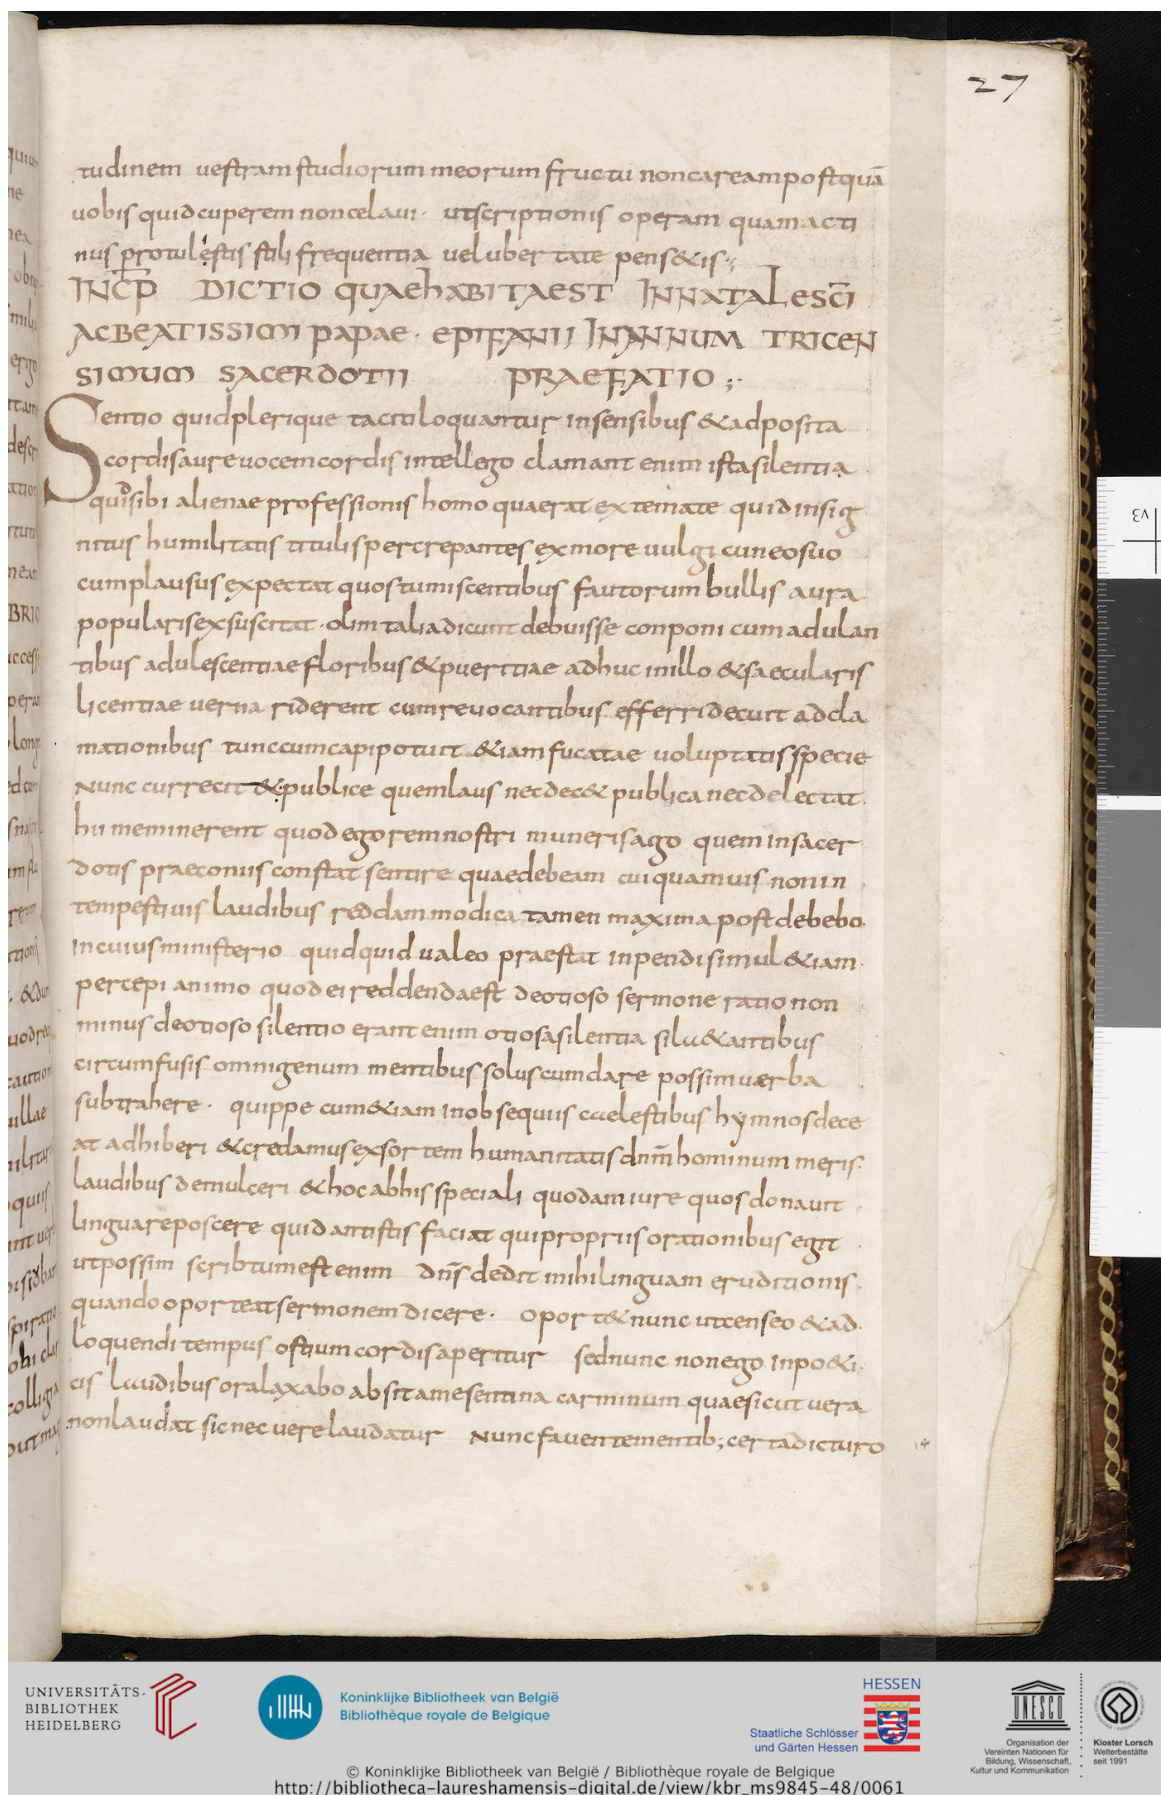 27
tudinem uestram studiorum meorum fructu non caream postquā
uobis quid cuperem non celaui · ut scriptionis operam quam acti
nus protulestis stili frequentia uel ubertate pens&is
INCP DICTIO QUAE HABITA EST IN NATALE SCI
AC BEATISSIMI PAPAE · EPIFANII IN ANNUM TRICEN
SIMUM SACERDOTII PRAEFATIO
Sentio quid plerique taciti loquantur in sensibus & adposita
cordis aure uocem cordis intellego clamant enim ista silentia
quid sibi alienae professionis homo quaerat ex temate quid insig
nitus humilitatis titulis percrepantes ex more uulgi cuneos uo
cum plausus expectat quos tumiscentibus fautorum bullis aura
popularis exsuscitat · olim talia dicunt debuisse conponi cum adulan
tibus adulescentiae floribus & pueritiae adhuc in illo & saecularis
licentiae uerna riderent cum reuocantibus efferri decuit adcla
mationibus tunc cum capi potuit &iam fucatae uoluptatis specie
Nunc currecit & publice quem laus nec dec& publica nec delectat
hii meminerent quod ego rem nostri muneris ago quem in sacer
dotis praeconiis constat sentire quae debeam cui quamuis non in
tempestiuis laudibus reddam modica tamen maxima post debebo
In cuius ministerio quidquid ualeo praestat inpendi simul &iam
percepi animo quod ei reddenda est de otioso sermone ratio non
minus de otioso silentio erant enim otiosa silentia si lu&antibus
circumfusis omnigenum mentibus solus cum dare possim uerba
subtrahere · quippe cum &iam in obsequiis caelestibus hymnos dece
at adhiberi & credamus exsortem humanitatis dnm hominum meris
laudibus demulceri & hoc ab his speciali quodam iure quos donauit
lingua reposcere quid antistis faciat qui propriis orationibus egit
ut possim scribtum est enim dns dedit mihi linguam eruditionis
quando oporteat sermonem dicere · oport& nunc ut censeo & ad
loquendi tempus ostium cordis aperitur sed nunc non ego in po&i
cis laudibus ora laxabo absit a me sentina carminum quae sicut uera
non laudat sic nec uere laudatur Nunc fauente mentib; certa dicturo
UNIVERSITÄTS-
BIBLIOTHEK
HEIDELBERG
Koninklijke Bibliotheek van België
Bibliothèque royale de Belgique
HESSEN
Staatliche Schlösser
und Gärten Hessen
UNESCO
Organisation der
Vereinten Nationen für
Bildung, Wissenschaft,
Kultur und Kommunikation
Kloster Lorsch
Welterbestätte
seit 1991
© Koninklijke Bibliotheek van België / Bibliothèque royale de Belgique
http://bibliotheca-laureshamensis-digital.de/view/kbr_ms9845-48/0061